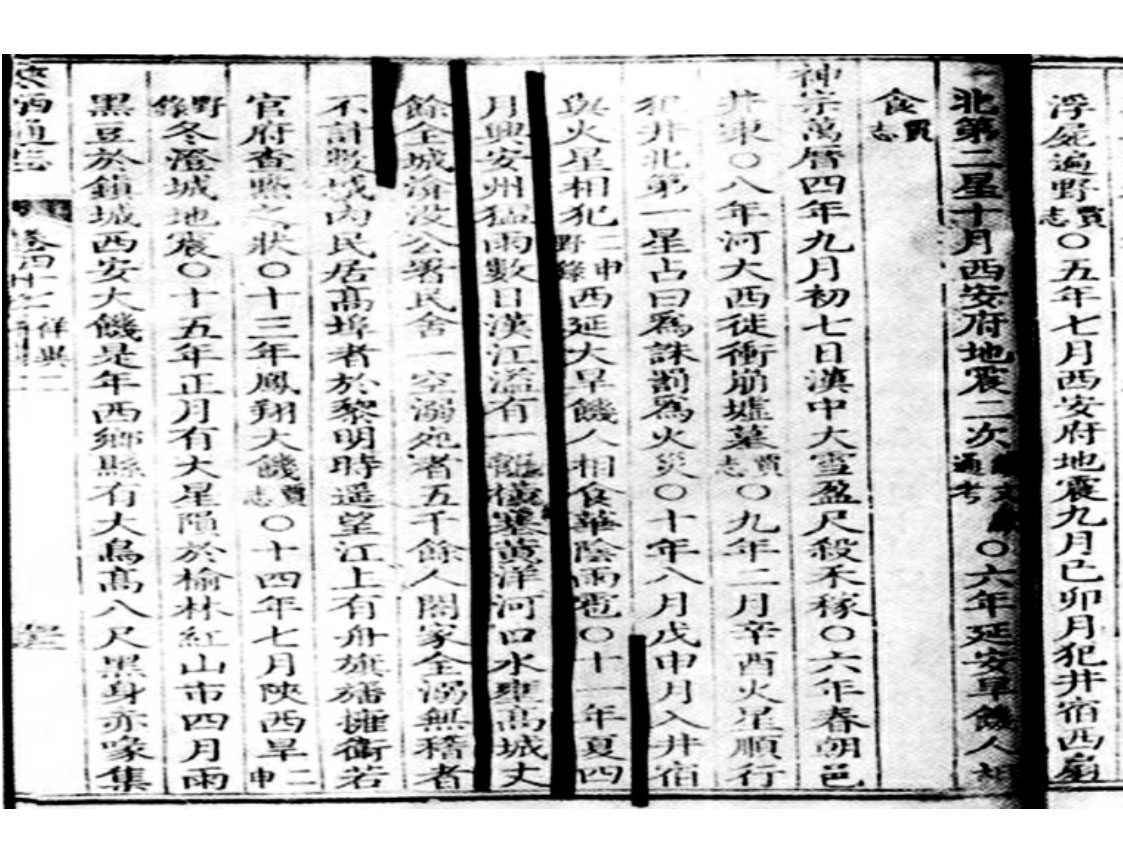 浮屍遍野賈志○五年七月西安府地震九月己卯月犯井宿西扇
北第二星十月西安府地震二次續文獻通考○六年延安旱饑人相
食賈志
神宗萬曆四年九月初七日漢中大雪盈尺殺禾稼○六年春朝邑
井東○八年河大西徙衝崩墟墓賈志○九年二月辛酉火星順行
犯井北第一星占曰爲誅罰爲火災○十年八月戊申月入井宿
與火星相犯二申野錄西延大旱饑人相食華陰雨雹○十一年夏四
月興安州猛雨數日漢江溢有一龍橫塞黃洋河口水壅高城丈
餘全城渰沒公署民舍一空溺死者五千餘人闔家全溺無稽者
不計數城內民居高埠者於黎明時遥望江上有舟旗旛擁衛若
官府查點之狀○十三年鳳翔大饑賈志○十四年七月陜西旱二申
野錄冬澄城地震○十五年正月有大星隕於榆林紅山市四月雨
黑豆於鎮城西安大饑是年西鄉縣有大鳥高八尺黑身亦喙集
陝西通志
卷四十七
祥異二